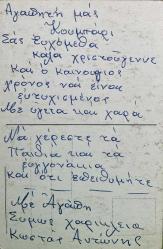 Αγαπητή μας
Κουμπάρι
Σας Ευχόμεθα
καλα χριστούγεννα
και ο καινουριος
χρόνος να είναι
ευτυχισμένος
Με υγεία και χαρά
Να χέρεστε τα
Παιδια και τα
εγγονάκια
και ότι επιθυμήτε
Με Αγάπη
χαρικλεια
Κωστάς Αντώνης